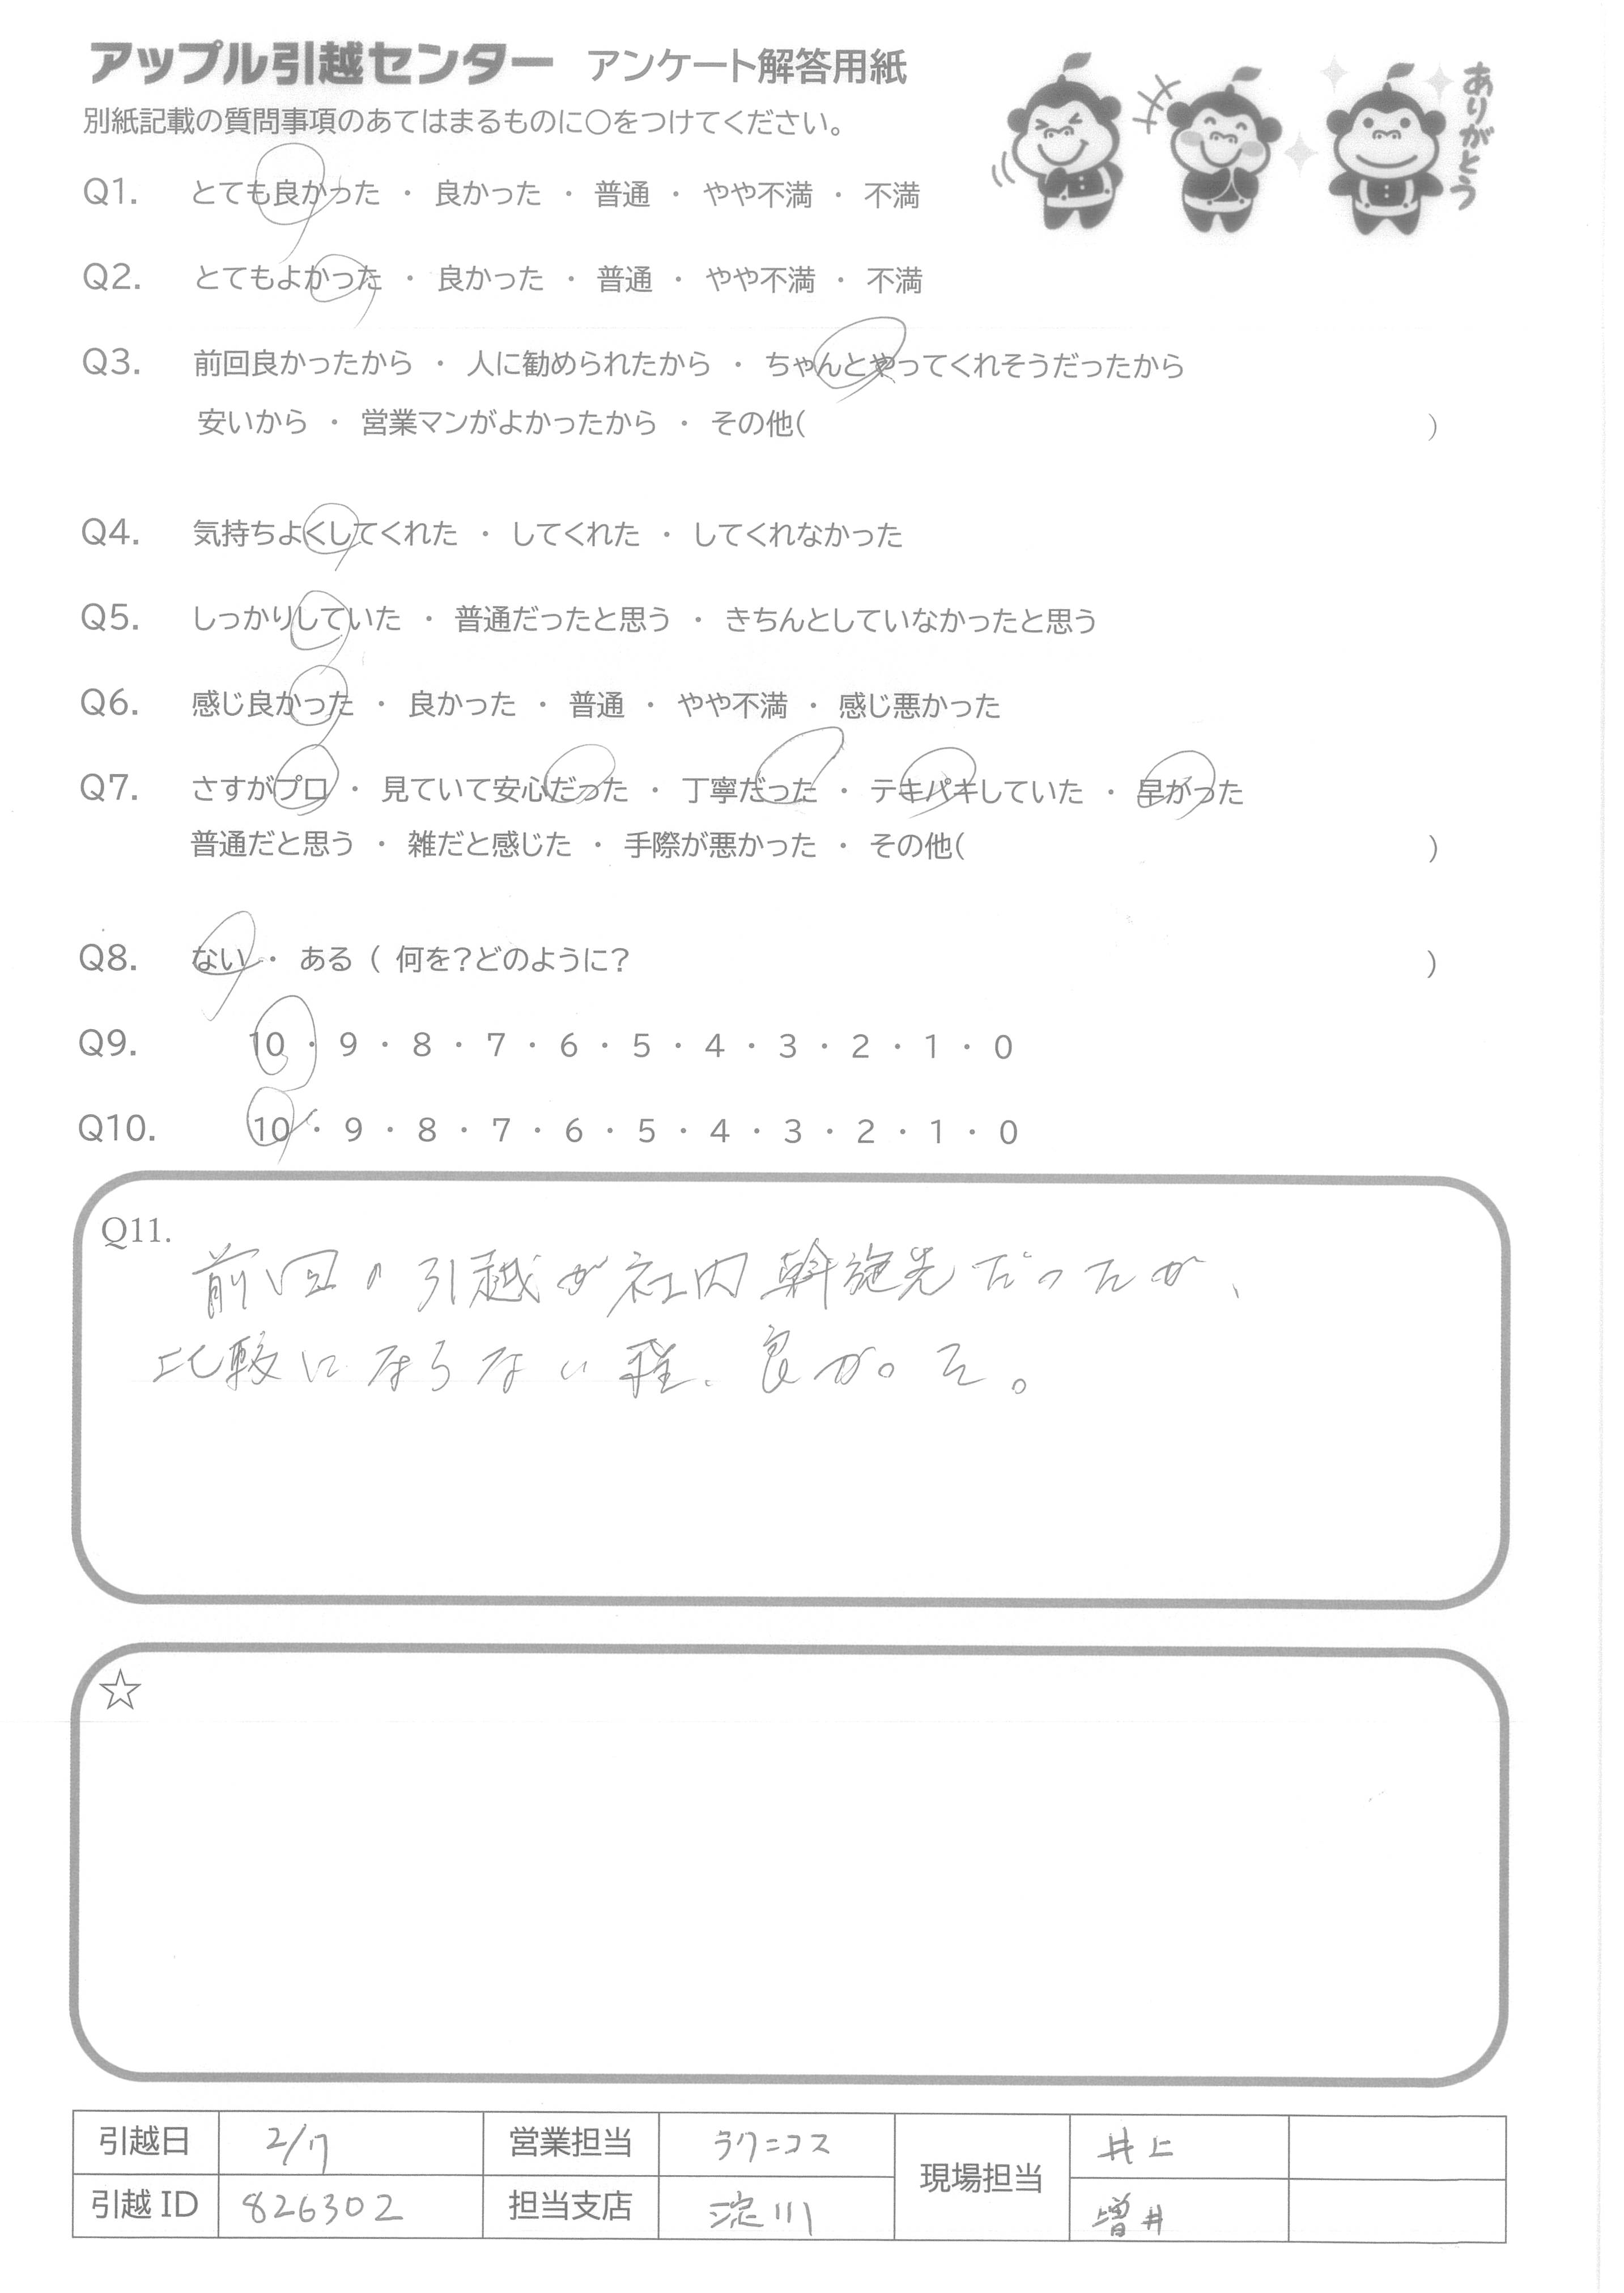 アップル引越センター アンケート解答用紙
ありがとう
別紙記載の質問事項のあてはまるものに○をつけてください。
Q1. とても良かった ・ 良かった ・ 普通 ・ やや不満 ・ 不満
Q2. とてもよかった ・ 良かった ・ 普通 ・ やや不満 ・ 不満
Q3. 前回良かったから ・ 人に勧められたから ・ ちゃんとやってくれそうだったから
安いから ・ 営業マンがよかったから ・ その他( )
Q4. 気持ちよくしてくれた ・ してくれた ・ してくれなかった
Q5. しっかりしていた ・ 普通だったと思う ・ きちんとしていなかったと思う
Q6. 感じ良かった ・ 良かった ・ 普通 ・ やや不満 ・ 感じ悪かった
Q7. さすがプロ ・ 見ていて安心だった ・ 丁寧だった ・ テキパキしていた ・ 早かった
普通だと思う ・ 雑だと感じた ・ 手際が悪かった ・ その他( )
Q8. ない ・ ある ( 何を?どのように? )
Q9. 10 ・ 9 ・ 8 ・ 7 ・ 6 ・ 5 ・ 4 ・ 3 ・ 2 ・ 1 ・ 0
Q10. 10 ・ 9 ・ 8 ・ 7 ・ 6 ・ 5 ・ 4 ・ 3 ・ 2 ・ 1 ・ 0
Q11.
前回の引越が社内斡旋先だったが、
比較にならない程、良かった。
☆
引越日 2/17 営業担当 ラクニコス 現場担当 井上
引越ID 826302 担当支店 淀川 増井